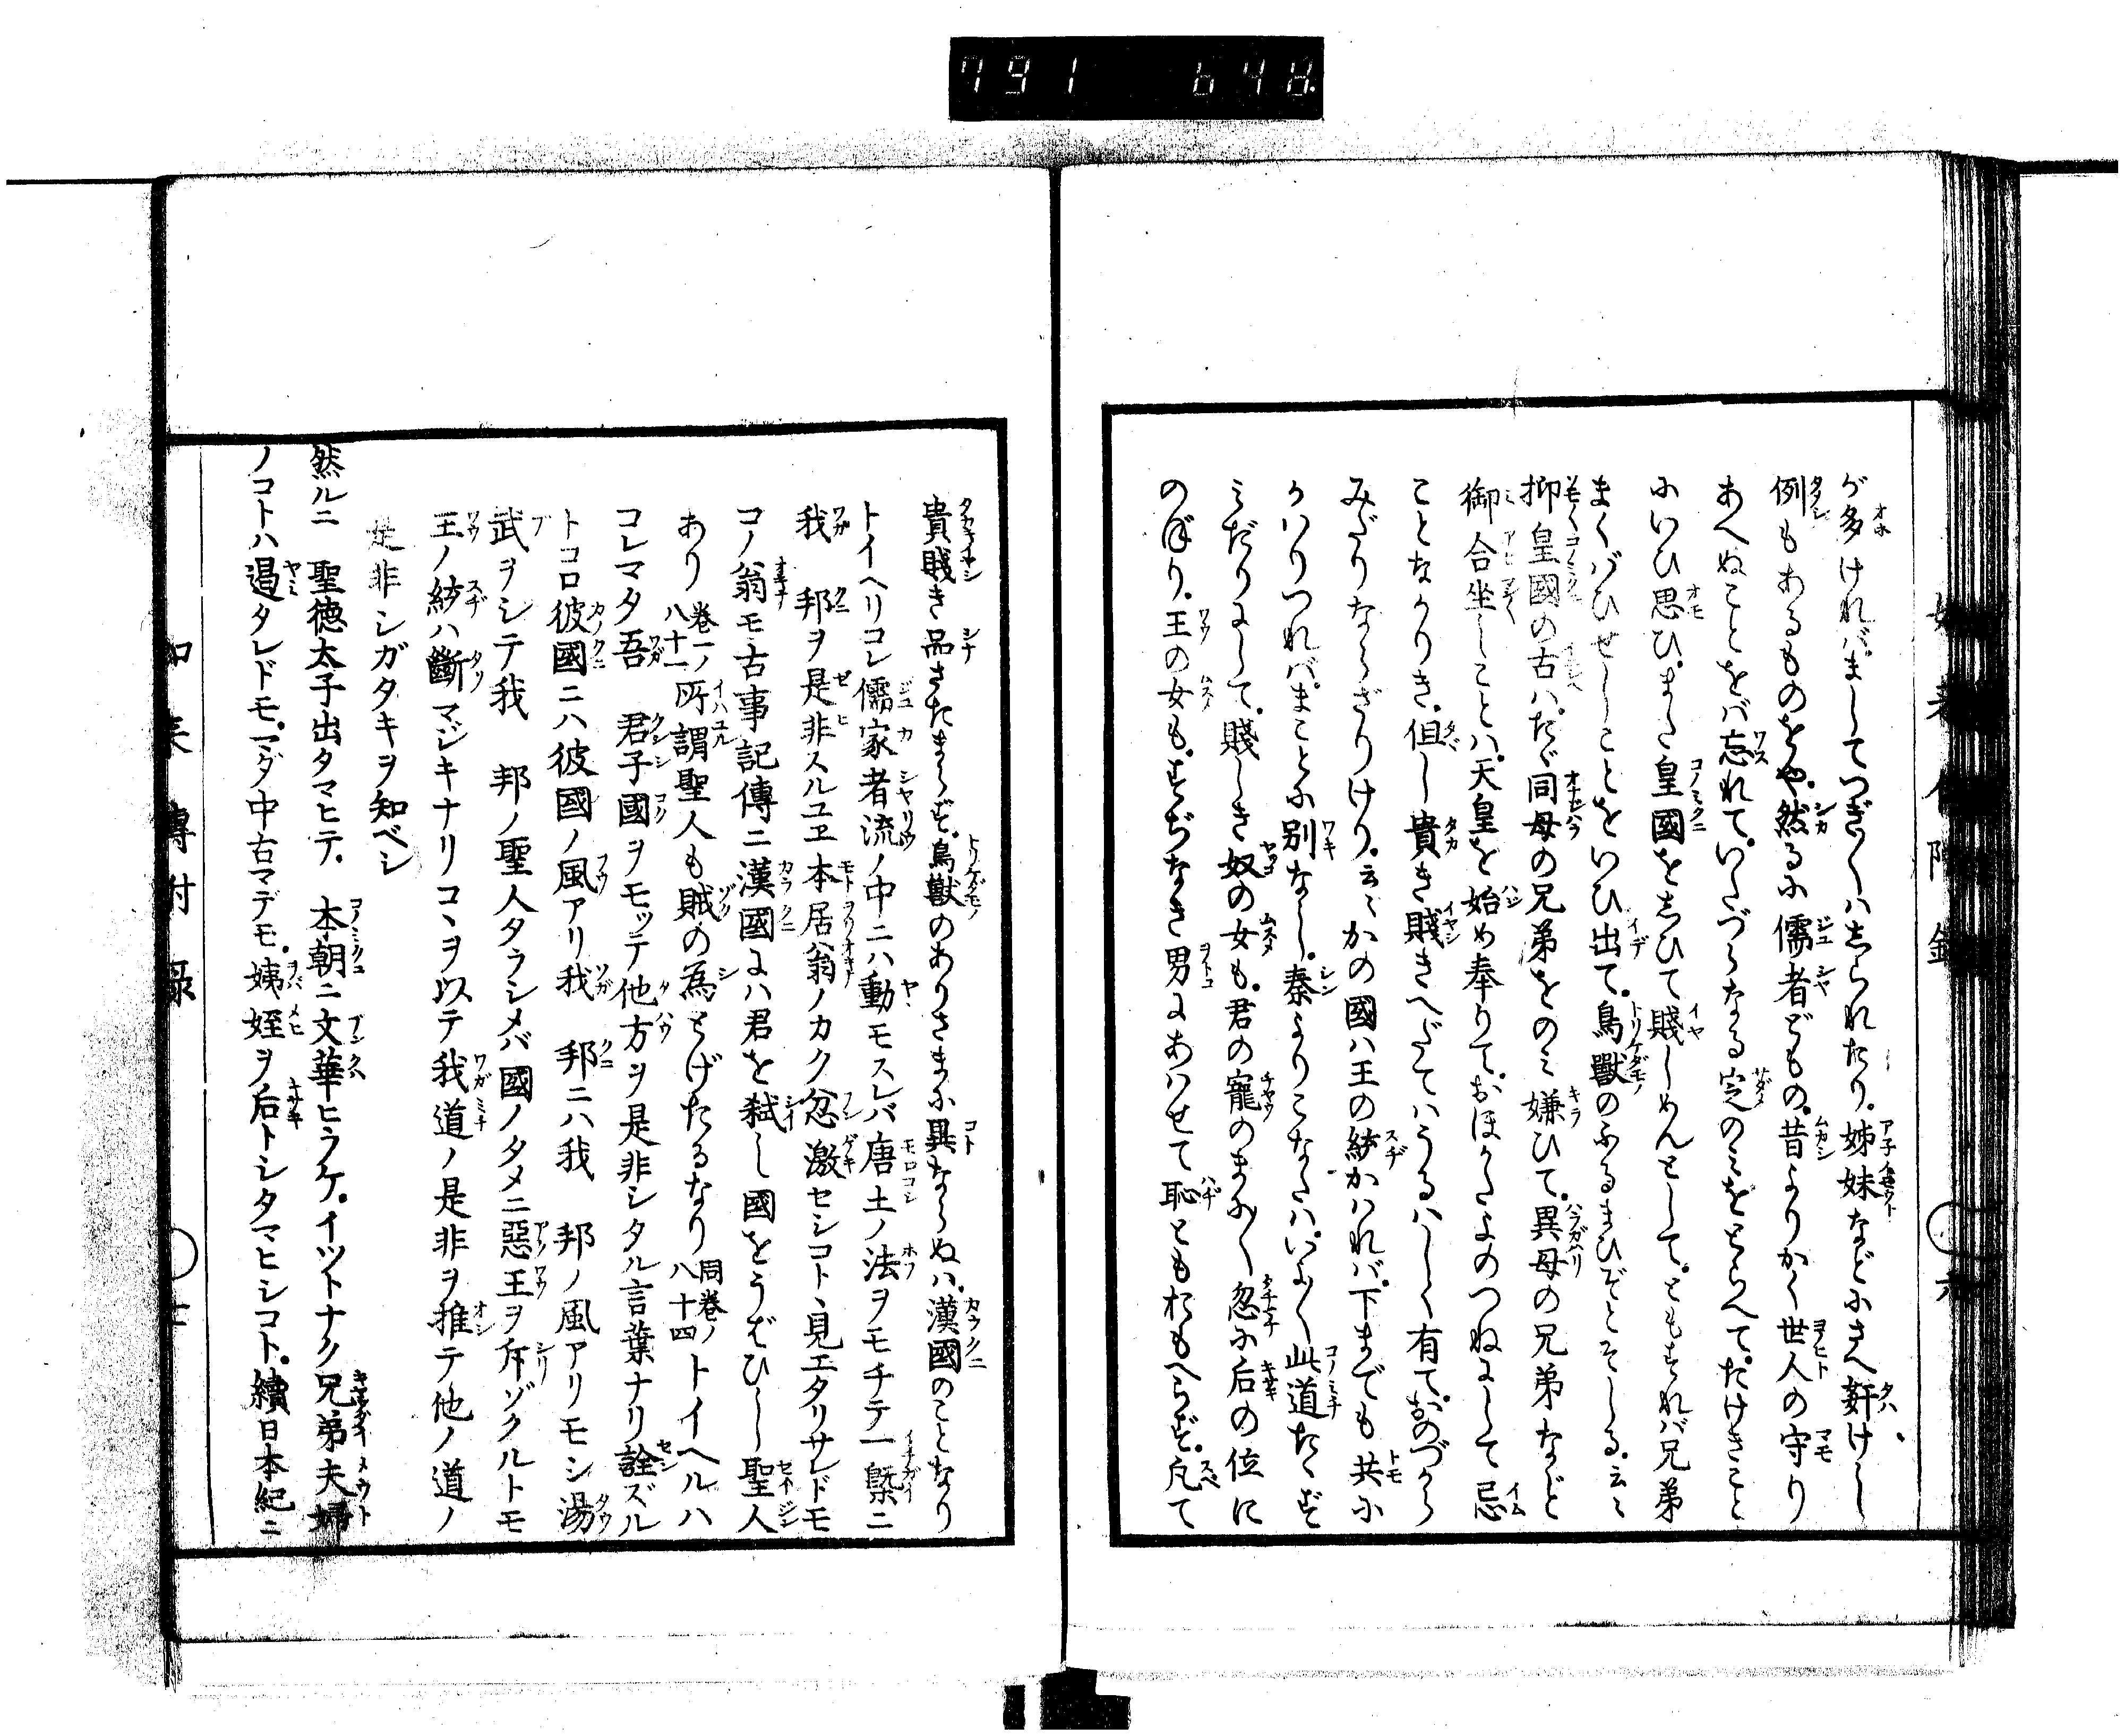 791 648
が多けれバましてつぎ〳〵ハ志られたり。姉妹などふさへ奸けし
例もあるものをや。然るふ儒者どもの。昔よりかく世人の守り
あへぬことをバ忘れて。いたづらなる定のミをとらへて。たけきこと
ふいひ思ひ。また皇國を志ひて賤しめんとして。ともすれバ兄弟
まぐバひせしことをいひ出て。鳥獸のふるまひぞとそしる。云々
抑皇國の古ハ。たゞ同母の兄弟をのミ嫌ひて。異母の兄弟など
御合坐しことハ。天皇を始め奉りて。おほかたよのつねにして忌
ことなかりき。但し貴き賤きへだてハうるハしく有て。おのづから
みだりならざりけり。云々かの國ハ王の紡かハれバ。下までも共ふ
かハりつれバ。まことふ別なし。秦よりこなたハ。いよ〳〵此道たゝず
ミだりにして。賤しき奴の女も。君の寵のまに〳〵忽ふ后の位に
のぼり。王の女も。すぢなき男にあハせて恥ともおもへらず。凡て
貴賤き品さだまらず。鳥獸のありさまふ異ならぬハ。漢國のことなり
トイヘリコレ儒家者流ノ中ニハ動モスレバ唐土ノ法ヲモチテ一槩ニ
我　邦ヲ是非スルユヱ本居翁ノカク忿激セシコトヽ見エタリサレドモ
コノ翁モ古事記傳ニ漢國にハ君を弑し國をうばひし聖人
あり巻一ノ八十一所謂聖人も賊の爲とげたるなり同巻ノ八十四トイヘルハ
コレマタ吾　君子國ヲモッテ他方ヲ是非シタル言葉ナリ詮ズル
トコロ彼國ニハ彼國ノ風アリ我　邦ニハ我　邦ノ風アリモシ湯
武ヲシテ我　邦ノ聖人タラシメバ國ノタメニ惡王ヲ斥ゾクルトモ
王ノ紡ハ斷マジキナリコヽヲ以テ我道ノ是非ヲ推テ他ノ道ノ
是非シガタキヲ知ベシ
然ルニ　聖徳太子出タマヒテ。　本朝ニ文華ヒラケ。イツトナク兄弟夫婦
ノコトハ遏タレドモ。マダ中古マデモ。姨姪ヲ后トシタマヒシコト。續日本紀ニ